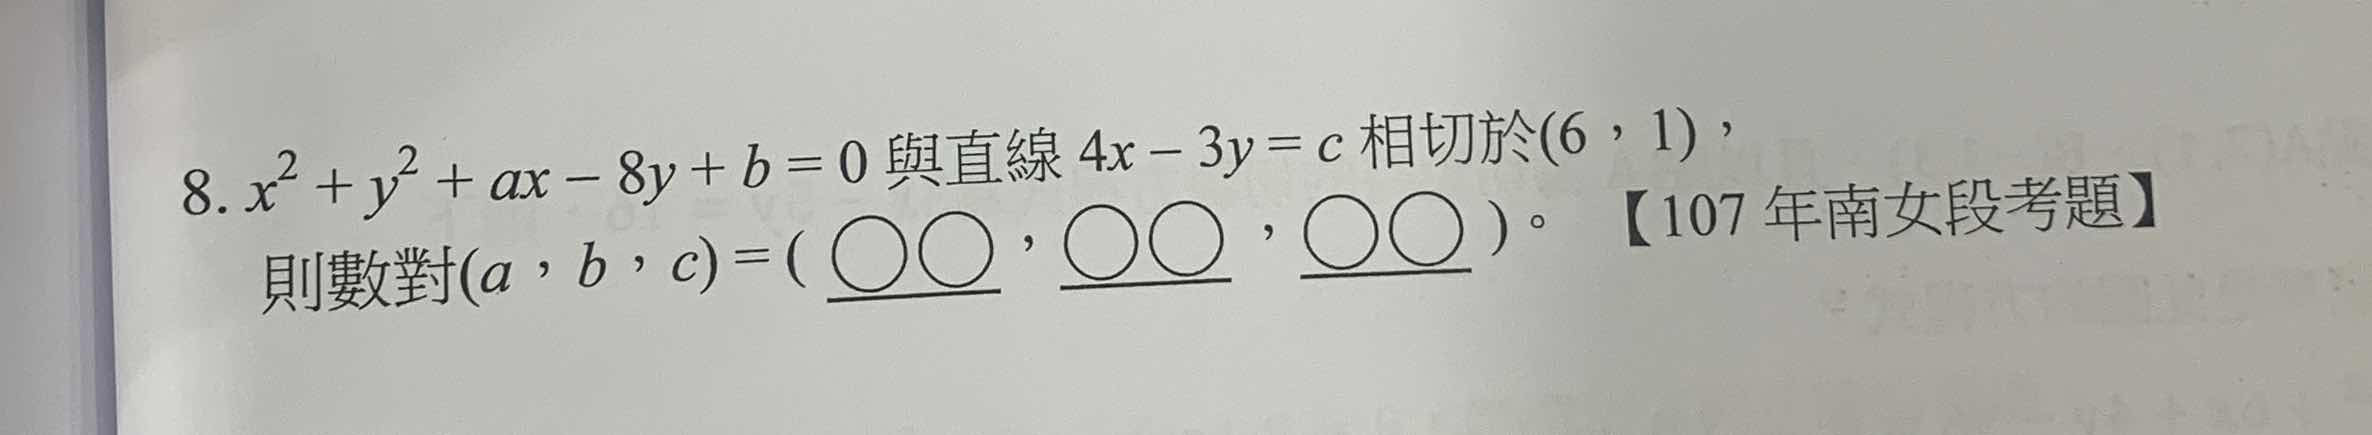 8. x² + y² + ax − 8y + b = 0 與直線 4x − 3y = c 相切於(6，1)，
則數對(a，b，c) = ( ○○，○○，○○ )。 【107 年南女段考題】